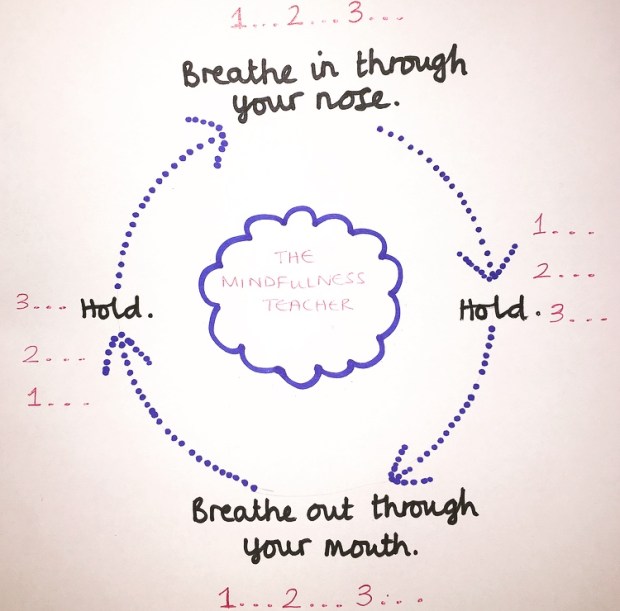 1... 2... 3...
Breathe in through
your nose.
1...
2...
Hold. 3...
Breathe out through
your mouth.
1... 2... 3...
3... Hold.
2...
1...
THE
MINDFULNESS
TEACHER